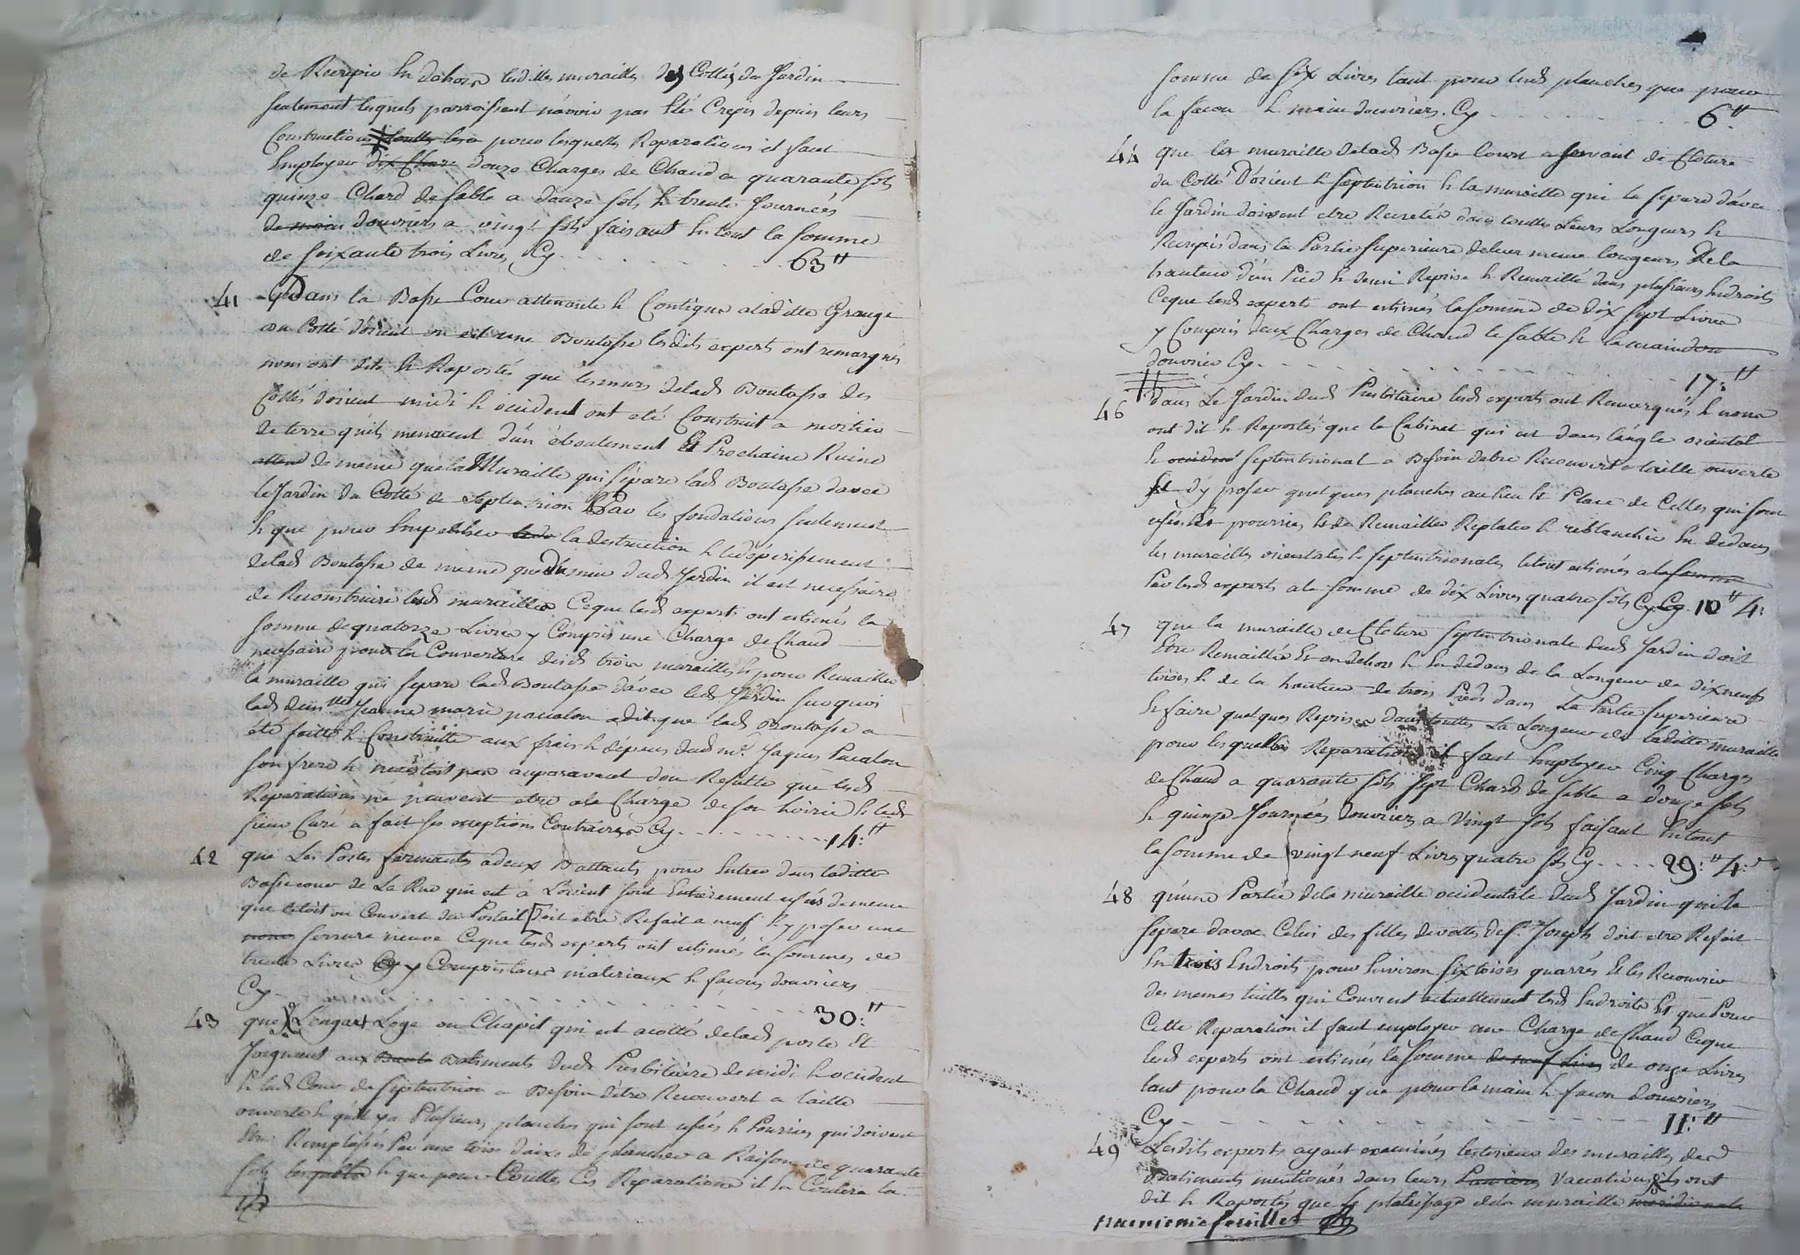 de Recrepir en dehors lesdittes murailles des Cottés du Jardin
seulement lesquels parroissent n'avoir pas été Crepis depuis leurs
Construction pour lesquelles Reparations il faut
Employer dix Char douze Charges de Chaud a quarante sols
quinze Chard de sable a douze sols & trente Journées
de main douvriers a vingt sols faisant en tout la somme
de soixante trois Livres Cy 63 ₶
41 Dans la Basse Cour attenante & Contigue a laditte Grange
au Cotté d'orient on est une Boutasse lesdits experts ont remarqués
nous ont dits & Raportés que les murs delad Boutasse des
Cottés d'orient midi & occident ont eté Construit a mortier
de terre quils menacent d'un eboulement Et Prochaine Ruine
de meme que la Muraille qui separe lad Boutasse d'avec
le Jardin du Cotté de septentrion Par les fondations seulement
& que pour Empecher la destruction & le deperissement
delad Boutasse de meme que dud Jardin il est necessaire
de Reconstruire lesd murailles Ceque lesd experts ont estimés la
somme de quatorze Livres y Compris une Charge de Chaud
necessaire pour la Couverture desd trois murailles & pour Remailler
la muraille qui separe lad Boutasse d'avec led Jardin surquoi
lad demlle Jeanne marie pacalon a dit que lad Boutasse a
été faitte & Construitte aux frais & depens dud mre Jaques Pacalon
son frere & n'existoit pas auparavant d'ou Resulte que lesd
Reparations ne peuvent etre a la Charge de son hoirie & led
sieur Curé a fait ses exeptions Contraires Cy 14 ₶
42 que Les Portes fermantes a deux Battants pour Entrer dans laditte
Basse cour de La Rue qui est a Lorient sont Entierement usées de meme
que le toit ou Couvert du Portail doit etre Refait a neuf & y poser une
serrure neuve Ceque lesd experts ont estimés la sommes de
trente Livres y Compris tous materiaux & facons douvriers
Cy 30 ₶
43 que Loge ou Chapit qui est a cotté delad porte Et
Joignant aux Batiments dudt Presbitaire de midi & occident
& lad Cour de septentrion a Besoin d'etre Recouvert a taille
ouverte & quil y a Plusieurs planches qui sont usées & Pourries qui doivent
Etre Remplacées Par une toise d'aix de plancher a Raison de quarante
sols & que pour Touttes Ces Reparations il en Coutera la
somme de six Livres tant pour lesd planches que pour
la facon & main douvriers. Cy 6 ₶
44 que les muraille delad Basse Cour servant de Cloture
du Cotté D'orient & septentrion & la muraille qui la separe d'avec
le Jardin doivent etre Recretée dans touttes Leurs Longueurs &
Recrepis dans la Partie superieure de leur meme longeurs De la
hauteur d'un Pied & demi Reprise & Remaillé dans plusieurs Endroits
Ceque lesd experts ont estimés la somme de dix sept Livres
y Compris deux Charges de Chaud le sable & la main
douvrier Cy 17 ₶
46 dans Le Jardin dud Presbitaire lesd experts ont Remarqués & nous
ont dit & Raportés que le Cabinet qui est dans langle oriental
& occident septentrional a Besoin detre Recouvert a taille ouverte
Et d'y poser quelques planches au lieu & Place de Celles qui sont
usées & pourries & de Remailler Replatrer & reblanchir en dedans
les murailles orientales & septentrionales le tout estimés a la somme
Par lesd experts a la somme de dix Livres quatre sols Cy Cy 10 ₶ 4 s
47 que la muraille de Cloture septentrionale dud Jardin doit
Etre Remaillée En dehors & En dedans de la Longeur de dixneuf
toises & de la hauteur de trois Pieds dans La Partie superieure
& faire quelques Reprises dans touttes La Longeur de laditte muraille
pour lesquelles Reparations il faut Employer Cinq Charges
de Chaud a quarante sols sept Chard de sable a douze sols
& quinze Journées douvriers a Vingt sols faisant En tout
la somme de vingt neuf Livres quatre sols Cy 29 ₶ 4 s
48 qu'une Partie dela muraille occidentale dud Jardin qui le
separe davec Celui des filles devottes de St Joseph doit etre Refait
En trois Endroits pour Environ six toises quarrés & les Recouvrir
des memes tuilles qui Couvrent actuellement lesd Endroits Et que Pour
Cette Reparation il faut employer une Charge de Chaud Ceque
lesd experts ont estimés la somme de neuf Livres de onze Livres
tant pour la Chaud que pour la main & facon douvriers
Cy 11 ₶
49 Lesdits experts ayant examinés lexterieur des murailles des
Batiments mentionés dans leurs Vacations ont
dit & Raportés que le platrissage d'un muraille meridionale
feuillet